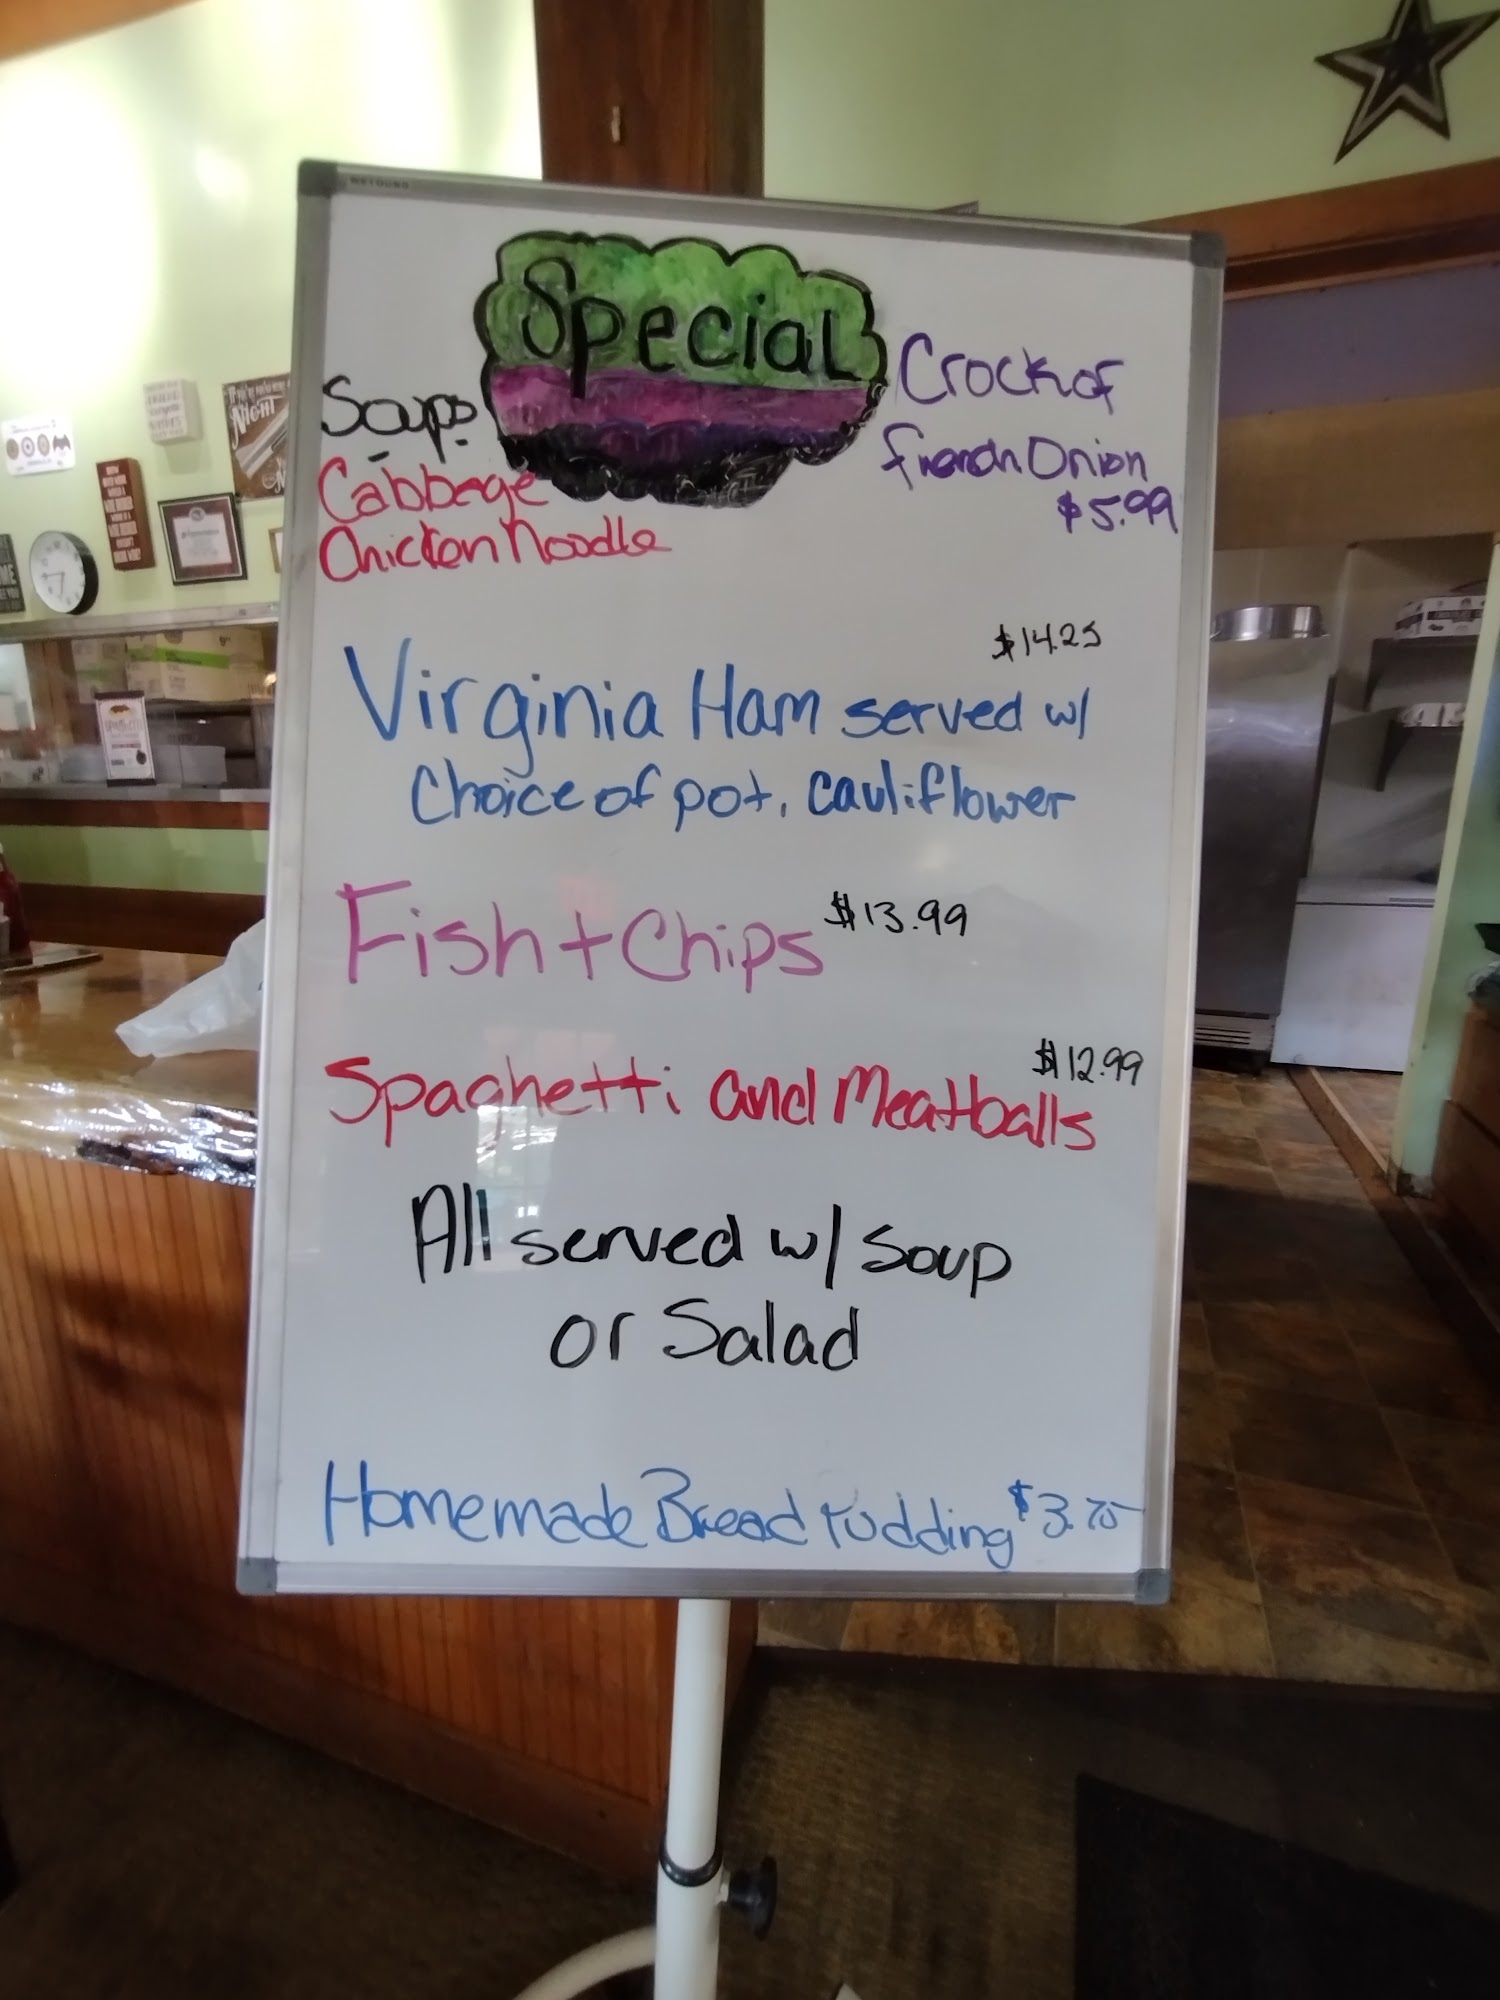 Special
Soups
Cabbage
Chicken Noodle
Crock of
French Onion
$5.99
$14.25
Virginia Ham served w/
Choice of pot, cauliflower
Fish + Chips $13.99
$12.99
Spaghetti and Meatballs
All served w/ Soup
or Salad
Homemade Bread Pudding $3.75
NIGHT